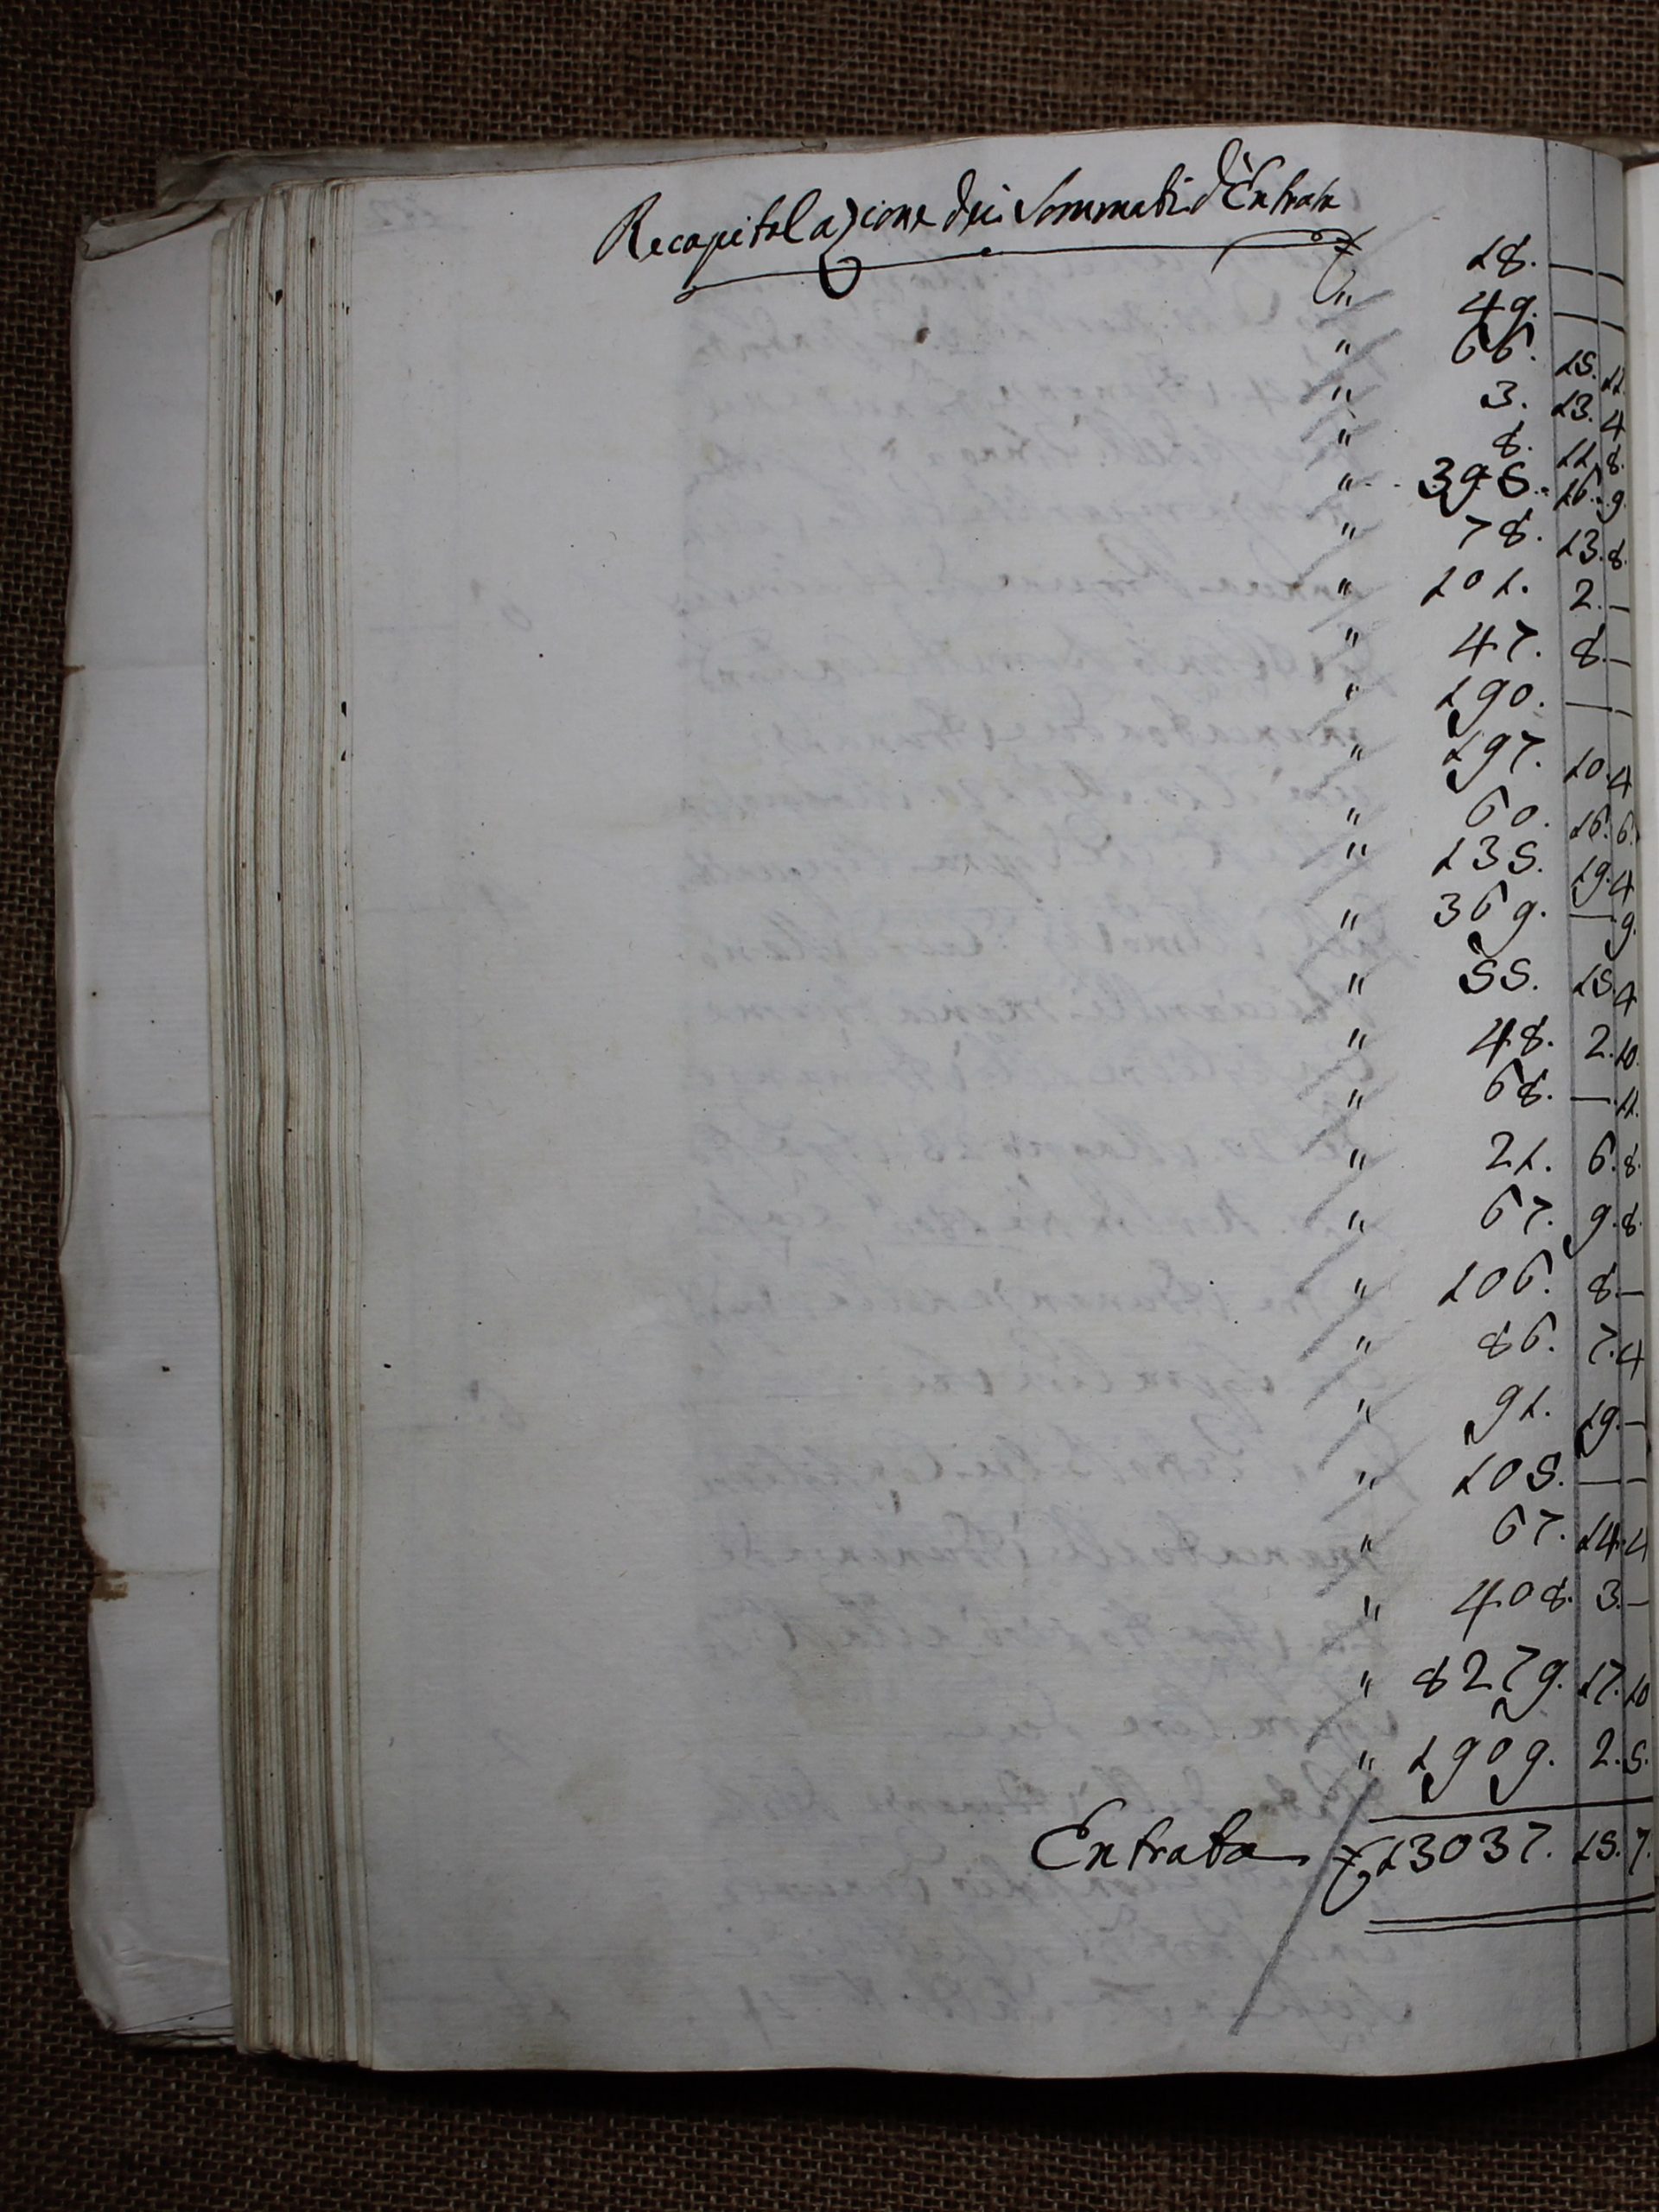 Recapitolazione dei Sommati d'Entrata
£ 18. — —
" 49. — —
" 66. 15. 11.
" 3. 13. 4
" 8. 11. 8.
" 395. 16. 9.
" 78. 13. 8.
" 101. 2. —
" 47. 8. —
" 190. — —
" 197. 10. 4
" 60. 16. 6.
" 135. 19. 4
" 369. — 9.
" 55. 15. 4
" 48. 2. 10.
" 68. — 11.
" 21. 6. 8.
" 67. 9. 8.
" 106. 8. —
" 86. 7. 4
" 91. 19. —
" 105. — —
" 67. 14. 4
" 408. 3. —
" 8279. 17. 10
" 1909. 2. 5.
Entrata £ 13037. 15. 7.